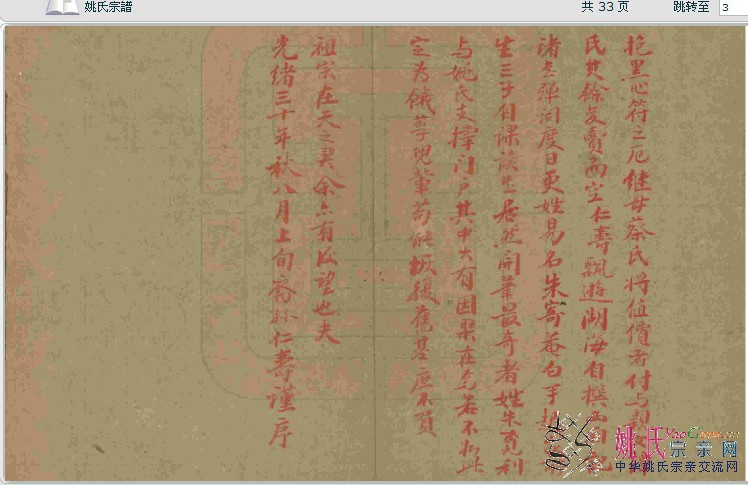 姚氏宗譜
共 33 页
跳转至
3
抱黑心符之厄继母蔡氏将值價者付与
氏其餘变賣而空仁壽飄遊湖海自撰
渚亞弹詞度日更姓易名朱寄菴白手
生三子自课读
居然開筆最奇者姓朱
利
与姚氏支撑门户其中大有因果在焉若不
定为餓莩兒輩苟能振復舊基庶不負
祖宗在天之灵余亦有以望也夫
光绪三十年秋八月上旬裔孫仁壽謹序
姚氏
宗亲网
中华姚氏宗亲交流网